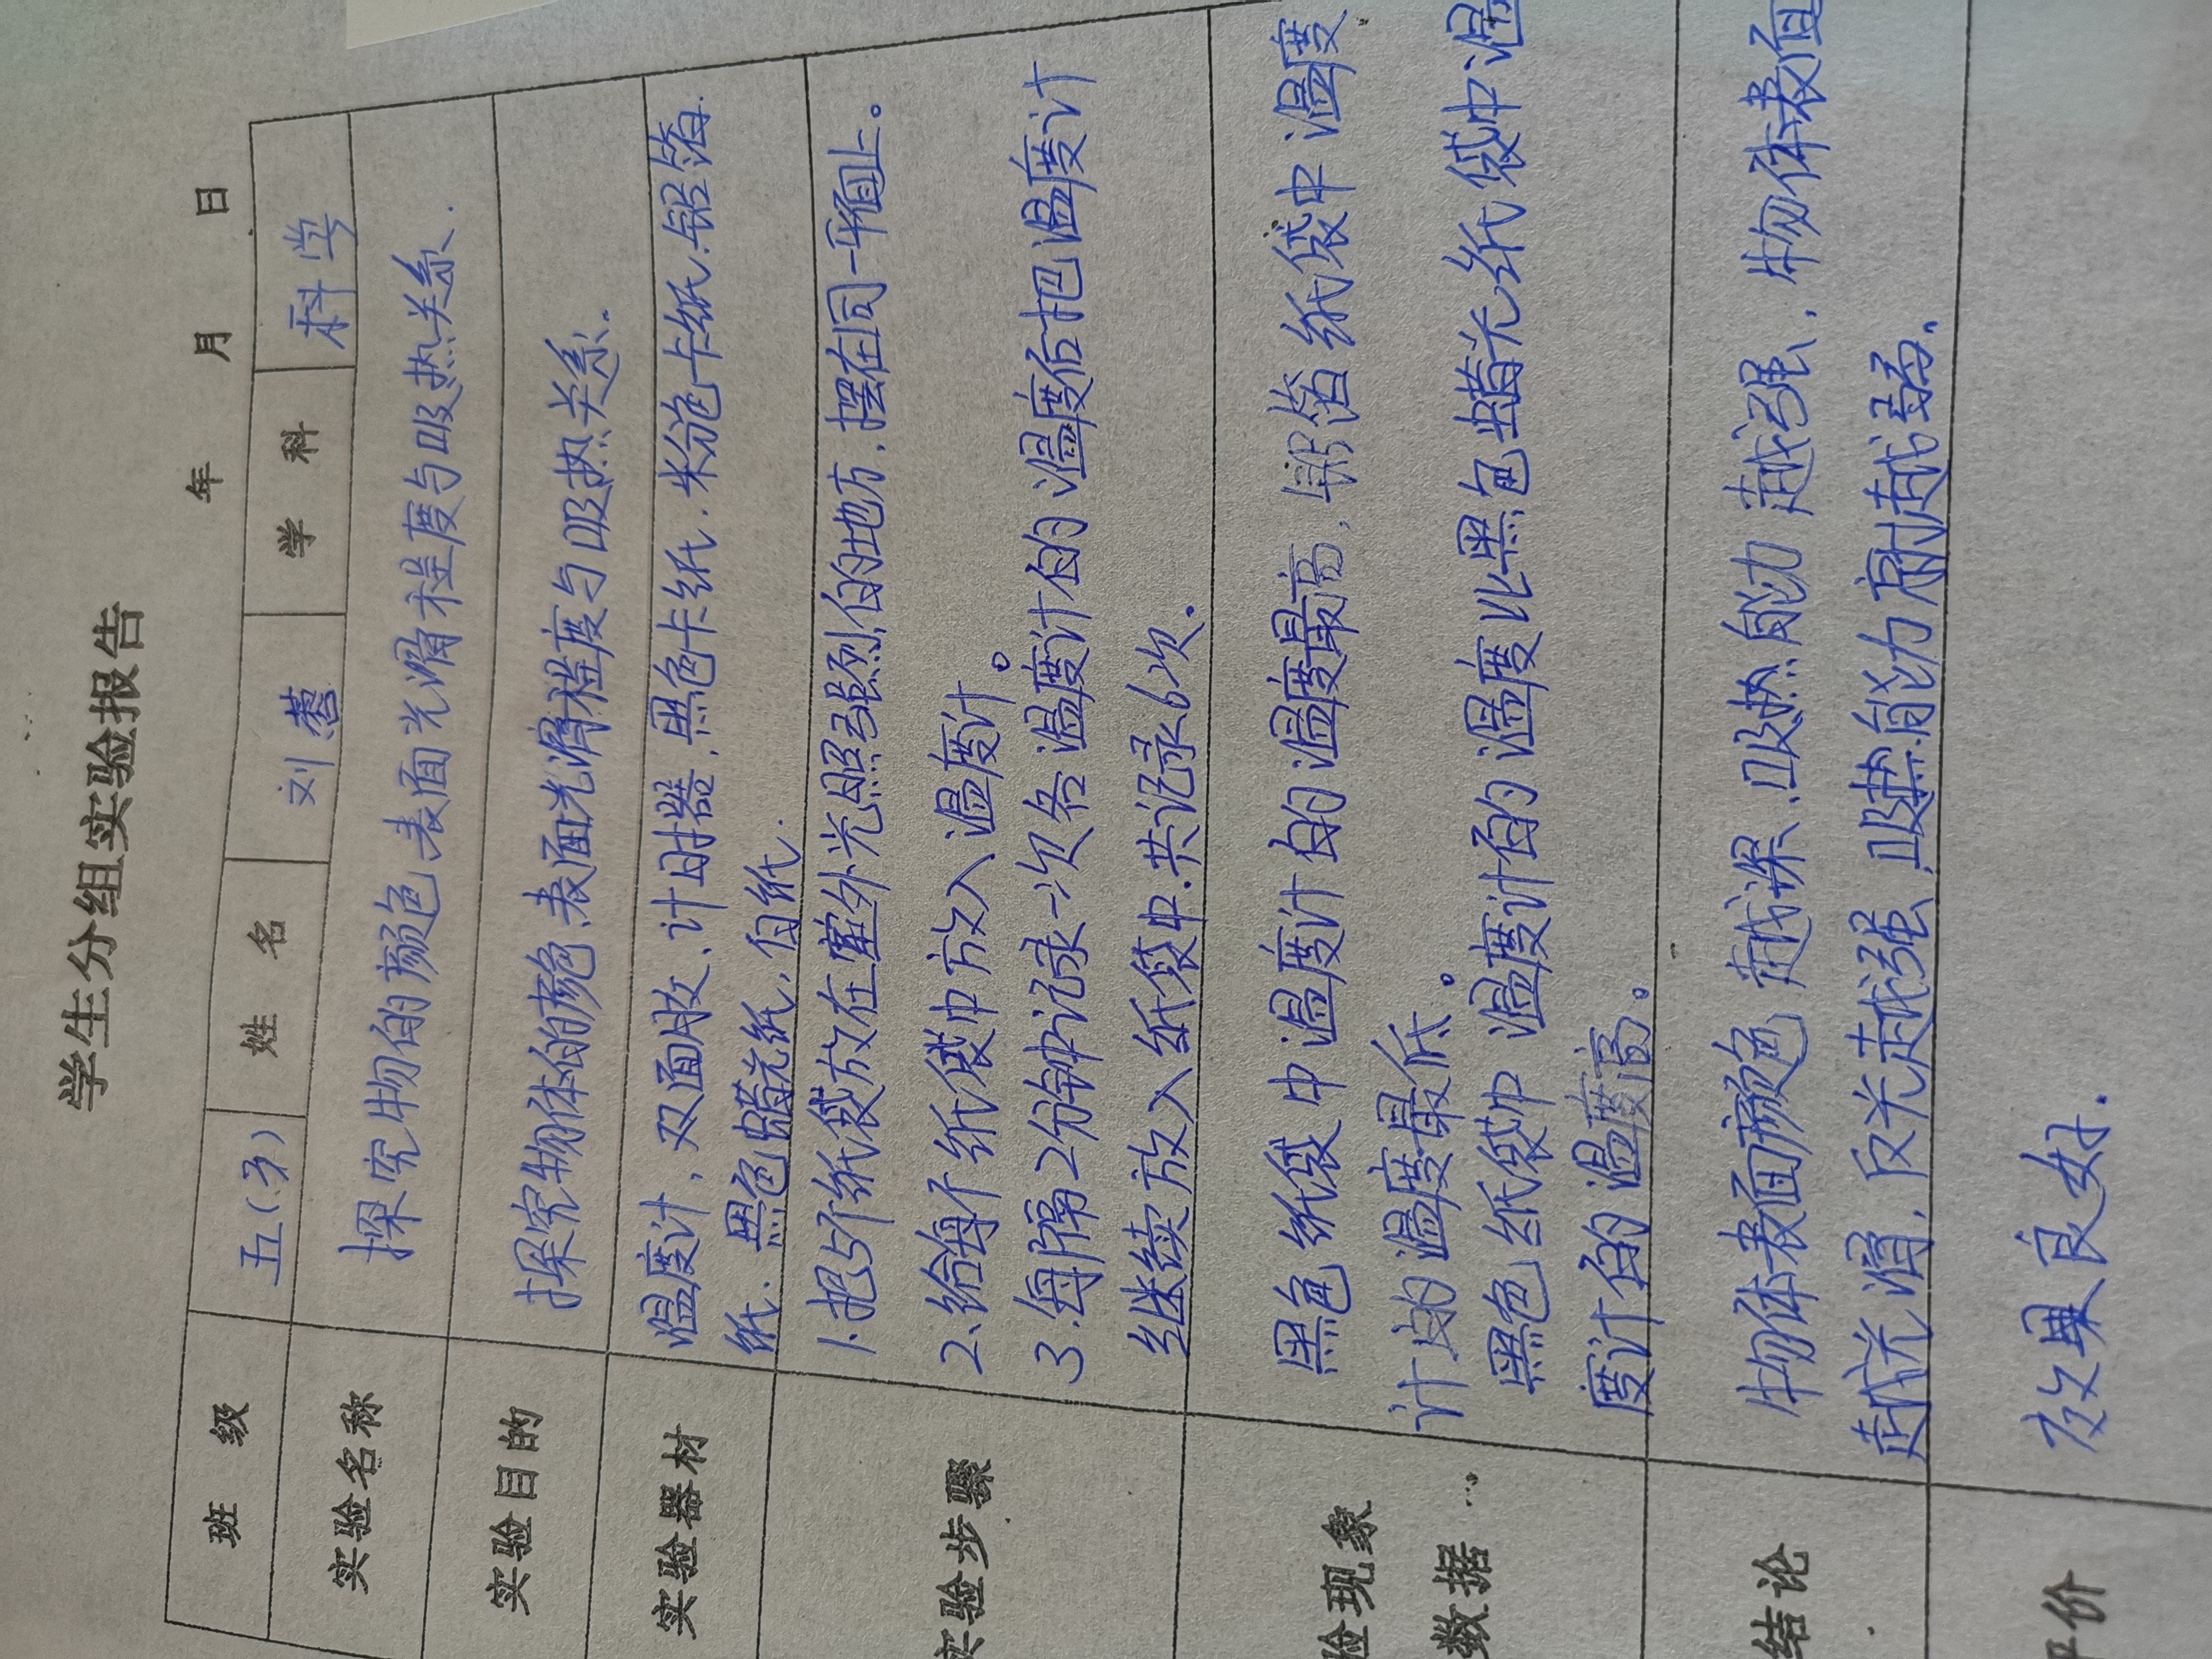 学生分组实验报告
年 月 日
班 级 五(3) 姓 名 刘 学 科 科学
实验名称 探究物的颜色表面光滑程度与吸热关系.
实验目的 探究物体的颜色.表面光滑程度与吸热关系.
实验器材 温度计,双面胶、计时器.黑色卡纸.粉色卡纸.铝箔
纸.黑色蜡光纸,白纸.
实验步骤 1.把5个纸袋放在室外光照强烈的地方,摆在同一平面上。
2.给每个纸袋中放入温度计。
3.每隔2分钟记录一次各温度计的温度后把温度计
继续放入纸袋中.共记录6次.
验现象 黑色纸袋中温度计的温度最高,铝箔纸袋中温度
计的温度最低。
数据 黑色纸袋中温度计的温度比黑色蜡光纸袋中温
度计的温度高。
结论 物体表面颜色越深、吸热能力越强,物体表面
越光滑,反光越强.吸热能力就越弱.
评价 效果良好.